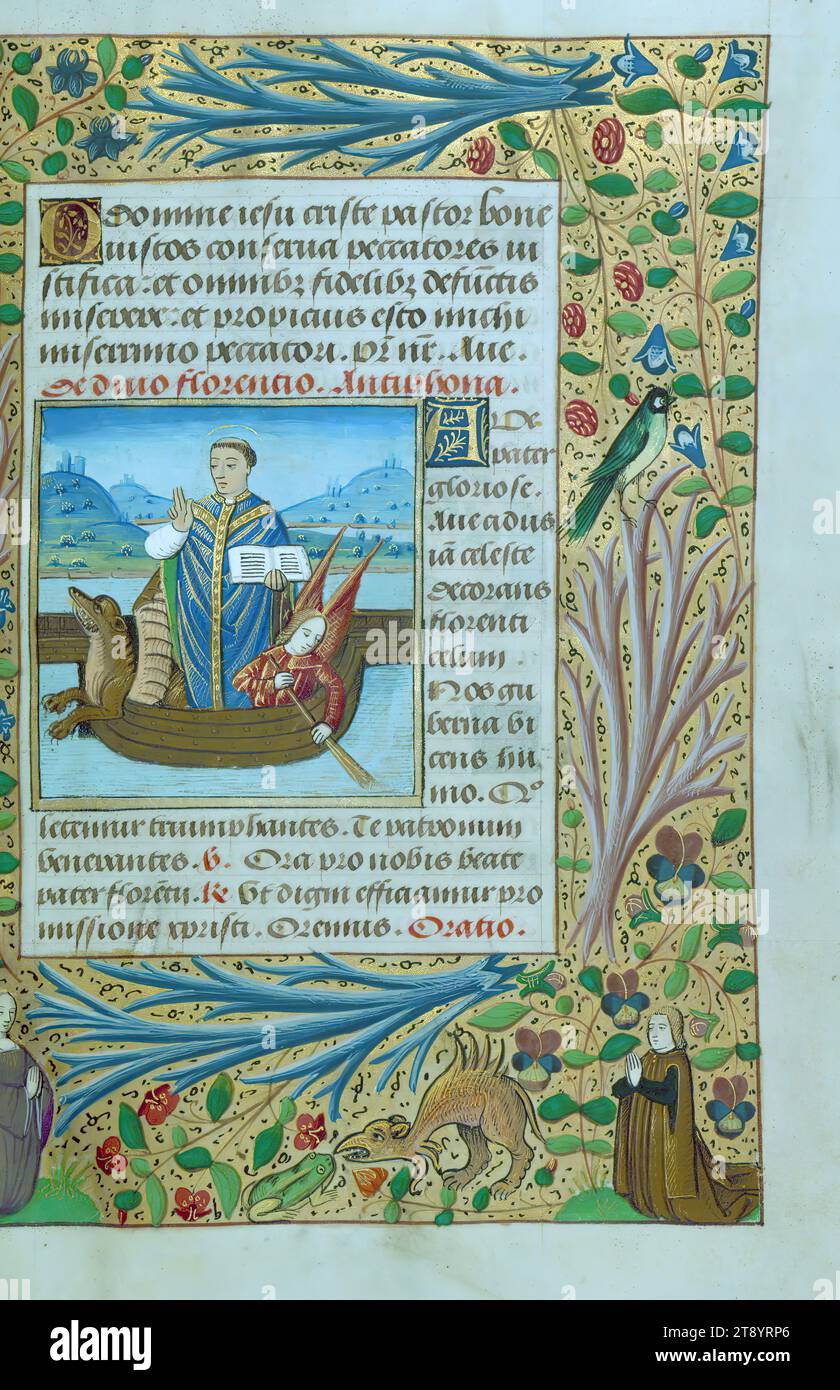 O domine iesu criste pastor bone
iustos conserua peccatores iu
stifica: et omnibz fidelibz defūctis
miserere: et propicius esto michi
miserrimo peccatori. Pr̄ nr̄. Aue.
De diuo florentio. Antiphona.
Ave
pater
gloriose.
Aue cidus
iā celeste
decorans
florenti
celum
Nos gu
berna vi
cens hu
mo. Qo
letemur triumphantes. Te patronum
venerantes. V. Ora pro nobis beate
pater florēti. R. Vt digni efficiamur pro
missione xpristi. Oremus. Oratio.
a
alamy
alamy
Image ID: 2T8YRP6
www.alamy.com